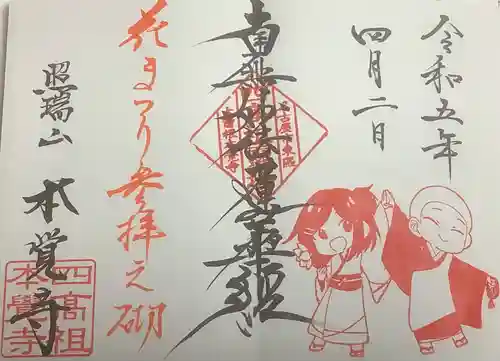 令和五年
四月二日
南無妙法蓮華経
花まつり参拝之砌
照瑞山 本覚寺
四高祖
本覺寺